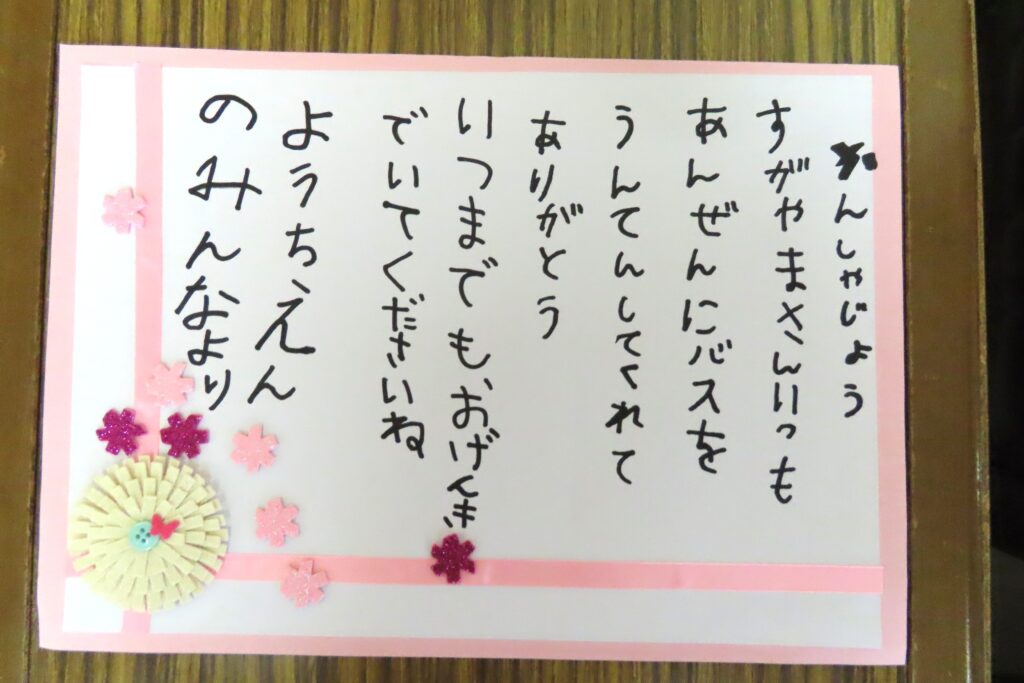 かんしゃじょう
すがやまさんいつも
あんぜんにバスを
うんてんしてくれて
ありがとう
いつまでもおげんき
でいてくださいね
ようちえん
のみんなより